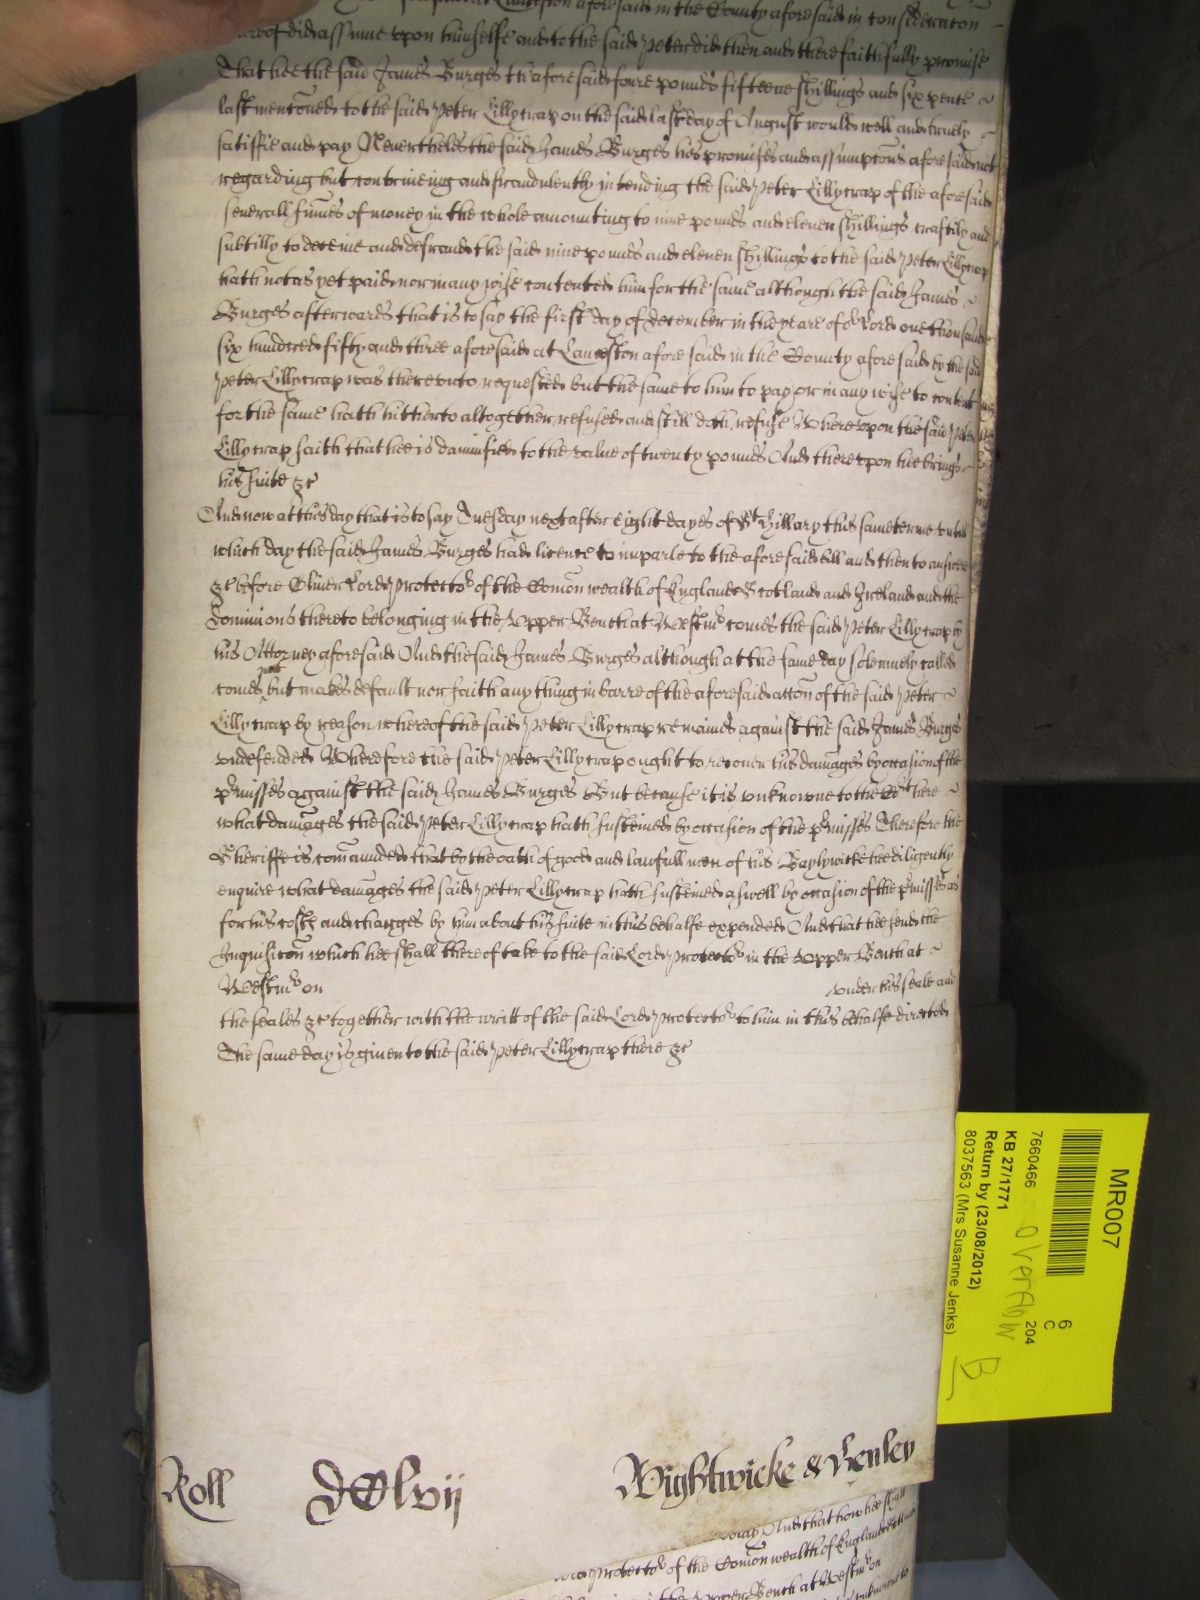 at Lanceston aforesaid in the County aforesaid in consideracon
thereof did assume upon himselfe and to the said Peter did then and there faithfully promise
That hee the said James Burges th aforesaid foure pounds fifteene shillings and six pence
last mentioned to the said Peter Lillycrap on the said last day of August would well and truely
satisfie and pay Neverthelesse the said James Burges his promises and assumptions aforesaid not
regarding but contriveing and fraudulently intending the said Peter Lillycrap of the aforesaid
severall summes of money in the whole amounting to nine pounds and eleven shillings craftily and
subtilly to deceive and defraude the said nine pounds and eleven shillings to the said Peter Lillycrap
hath not as yet paid nor in any wise contented him for the same although the said James
Burges afterwards that is to say the first day of December in the yeare of or Lord one thousand
six hundred fifty and three aforesaid at Lanceston aforesaid in the County aforesaid by the said
Peter Lillycrap was thereunto requested but the same to him to pay or in any wise to content
for the same hath hitherto altogether refused and still doth refuse Whereupon the said Peter
Lillycrap saith that hee is damnified to the value of twenty pounds And thereupon hee brings
his suite &c
And now at this day that is to say Tuesday next after eight dayes of St Hillary this same terme untill
which day the said James Burges had licence to imparle to the aforesaid bill and then to answere
&c before Oliver Lord Protector of the Comon wealth of England Scotland and Ireland and the
Dominions thereto belonging in the Upper Bench at Westmr comes the said Peter Lillycrap by
his Attorney aforesaid And the said James Burges although at the same day solemnely called
comes not but makes default nor saith any thing in barre of the aforesaid accon of the said Peter
Lillycrap by reason whereof the said Peter Lillycrap remaines against the said James Burges
undefended Wherefore the said Peter Lillycrap ought to recover his damages by occasion of the
pmisses against the said James Burges But because it is unknowne to the Cort here
what damages the said Peter Lillycrap hath susteined by occasion of the pmisses Therefore the
Sheriffe is comaunded that by the oath of good and lawfull men of his Baylywicke hee diligently
enquire what damages the said Peter Lillycrap hath susteined aswell by occasion of the pmisses as
for his costs and charges by him about his suite in this behalfe expended And that hee send the
Inquisicon which hee shall thereof take to the said Lord Protector in the Upper Bench at
Westmr on under his seale and
the seales &c together with the writt of the said Lord Protector to him in this behalfe directed
The same day is given to the said Peter Lillycrap there &c
Roll Wightwicke & Henley
And that how hee shall
Protector of the Comon wealth of England
Upper Bench at Westmr on
unknowne to
MR007
7660466
KB 27/1771
Return by (23/08/2012)
8037563 (Mrs Susanne Jenks)
6
C
204
B